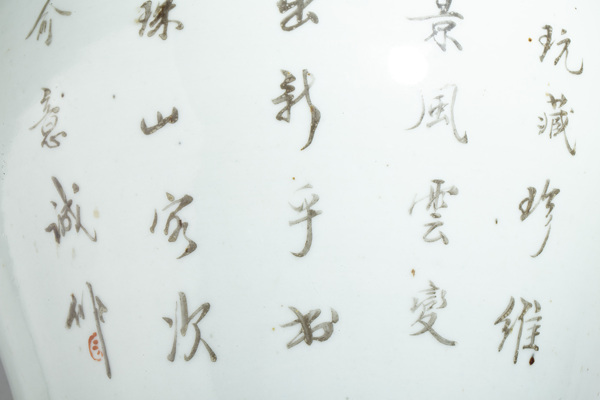 玩藏珍維
景風雲變
出新乎于
珠山客次
介意誠作